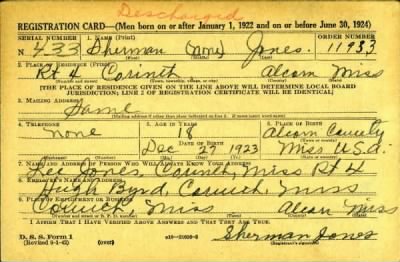 Discharged
REGISTRATION CARD—(Men born on or after January 1, 1922 and on or before June 30, 1924)
SERIAL NUMBER 1. NAME (Print) ORDER NUMBER
N. 433 Sherman (none) Jones. 11933
2. PLACE OF RESIDENCE (Print)
Rt 4 Corinth Alcorn Miss
(Number and street) (Town, township, village, or city) (County) (State)
[THE PLACE OF RESIDENCE GIVEN ON THE LINE ABOVE WILL DETERMINE LOCAL BOARD
JURISDICTION; LINE 2 OF REGISTRATION CERTIFICATE WILL BE IDENTICAL]
3. MAILING ADDRESS
Same
[Mailing address if other than place indicated on line 2. If same insert word same]
4. TELEPHONE 5. AGE IN YEARS 6. PLACE OF BIRTH
none 18 Alcorn County
DATE OF BIRTH
Dec 27 1923 Miss U.S.A.
7. NAME AND ADDRESS OF PERSON WHO WILL ALWAYS KNOW YOUR ADDRESS
Jones, Corinth, Miss Rt 4
8. EMPLOYER'S NAME AND ADDRESS
Hugh Byrd, Corinth, Miss
9. PLACE OF EMPLOYMENT OR BUSINESS
Corinth, Miss Alcorn Miss
I AFFIRM THAT I HAVE VERIFIED ABOVE ANSWERS AND THAT THEY ARE TRUE.
D. S. S. Form 1
(over) Sherman Jones
(Registrant's signature)